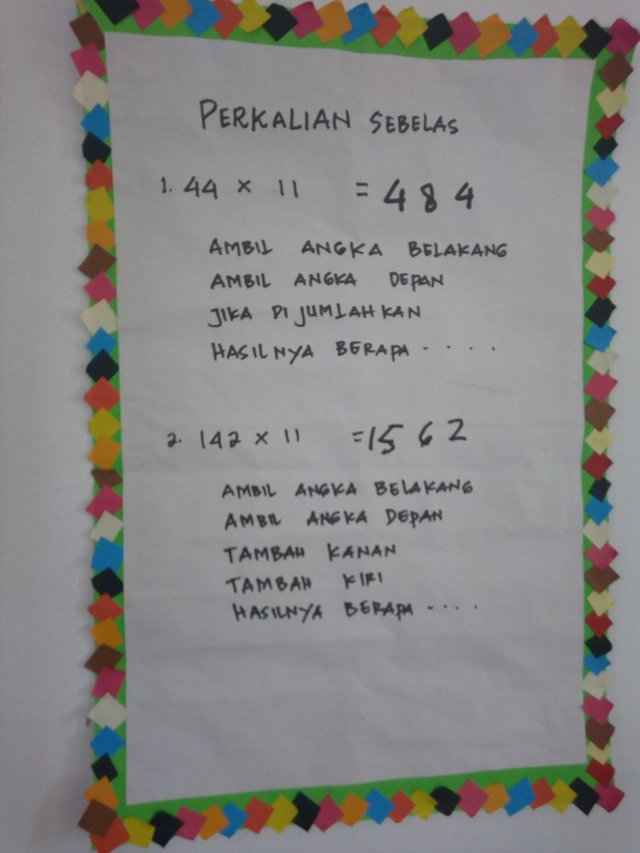 PERKALIAN SEBELAS
1. 44 x 11 = 484
AMBIL ANGKA BELAKANG
AMBIL ANGKA DEPAN
JIKA DIJUMLAHKAN
HASILNYA BERAPA ....
2. 142 x 11 = 1562
AMBIL ANGKA BELAKANG
AMBIL ANGKA DEPAN
TAMBAH KANAN
TAMBAH KIRI
HASILNYA BERAPA ....